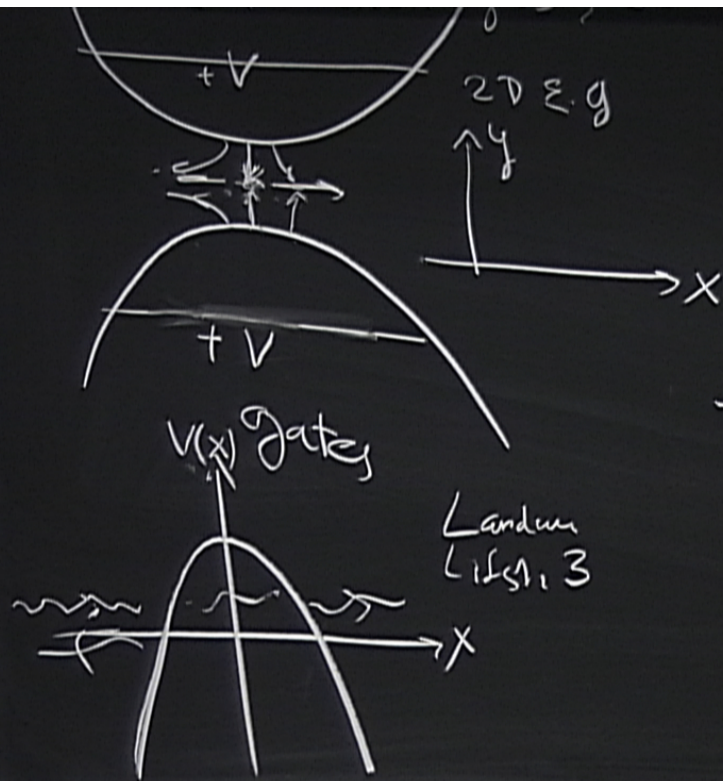 + V
2D E.g
y
X
+ V
gates
V(x)
Landau
Lifsh. 3
X